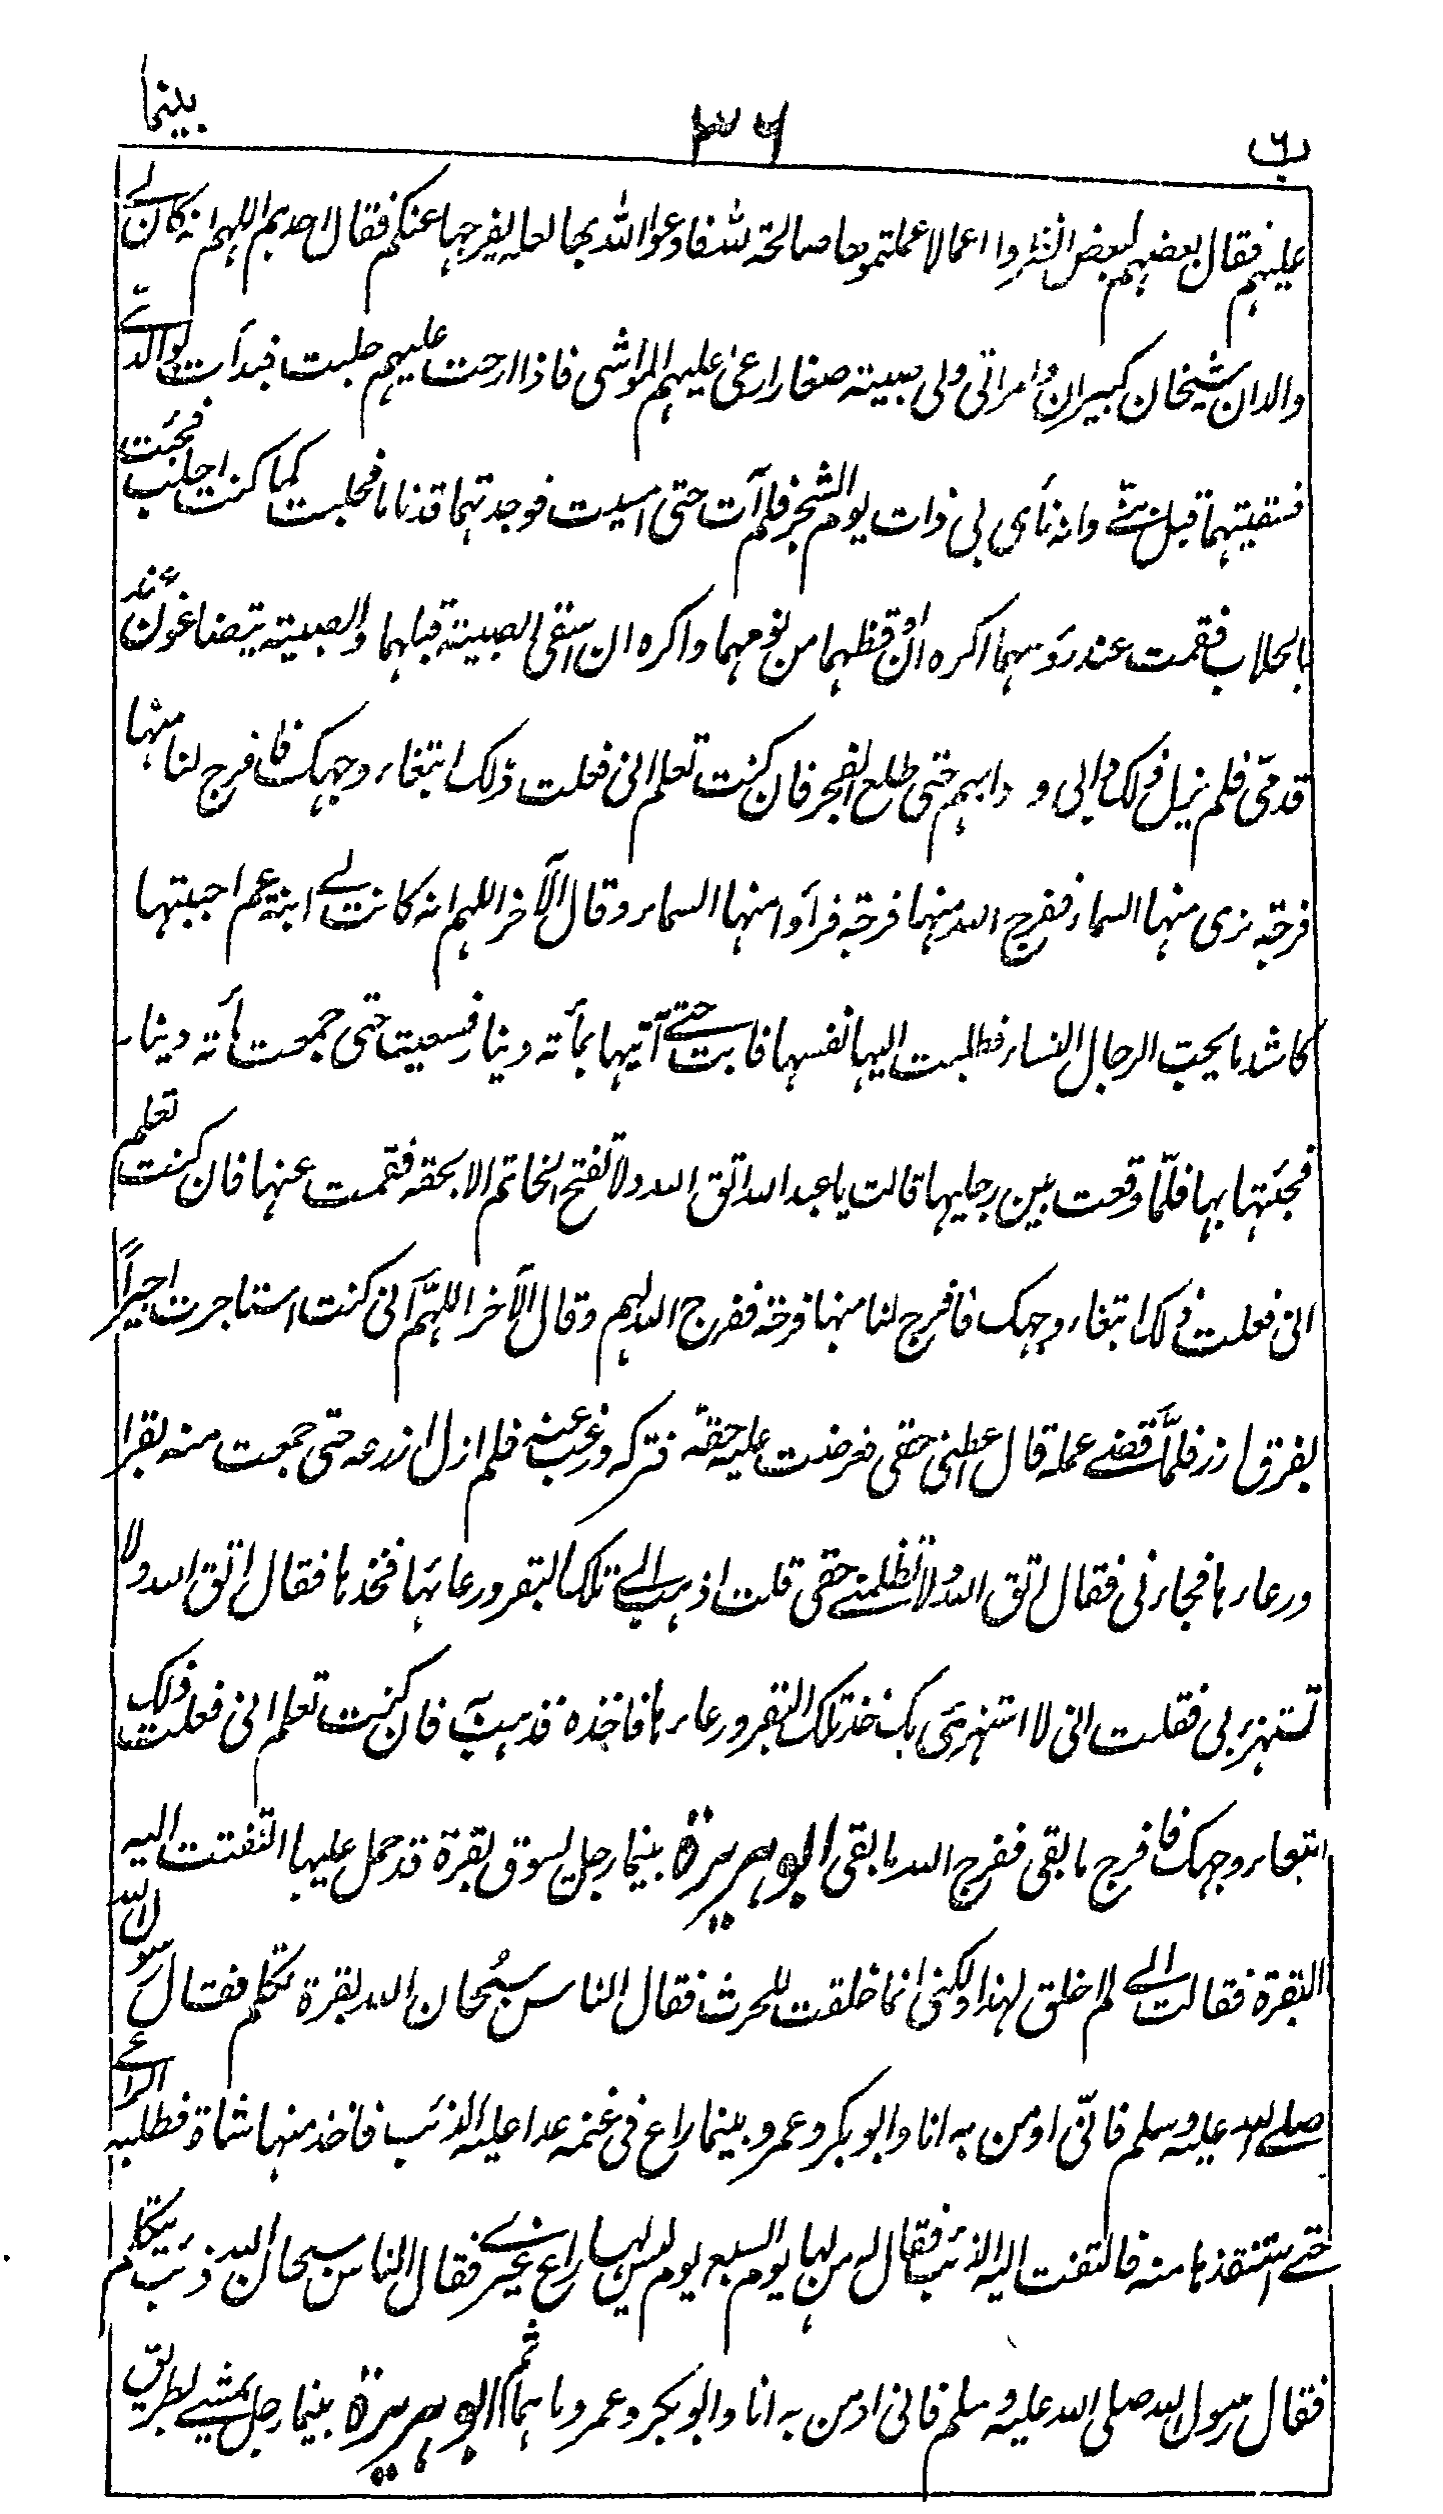 ب ٣٦ بينما
عليهم فقال بعضهم لبعض انظروا اعمالا عملتموها صالحة لله فادعوا الله بها لعله يفرجها عنكم فقال احدهم اللهم انه كان لى
والدان شيخان كبيران وامراتى ولى صبية صغار ارعى عليهم المواشى فاذا ارحت عليهم حلبت فبدأت بوالدىّ
فسقيتهما قبل بنىّ وانه نأى بى ذات يوم الشجر فلم آت حتى امسيت فوجدتهما قد ناما فحلبت كما كنت احلب فجئت
بالحلاب فقمت عند رؤسهما اكره ان اوقظهما من نومهما واكره ان اسقى الصبية قبلهما والصبية يتضاغون عند
قدمىّ فلم يزل ذلك دابى ودابهم حتى طلع الفجر فان كنت تعلم انى فعلت ذلك ابتغاء وجهك فافرج لنا منها
فرجة نرى منها السماء ففرج الله منها فرجة فرأوا منها السماء وقال الآخر اللهم انه كانت لى ابنة عم احببتها
كاشد ما يحب الرجال النساء فطلبت اليها نفسها فابت حتى آتيها بمأة دينار فسعيت حتى جمعت مأة دينار
فجئتها بها فلمّا وقعت بين رجليها قالت يا عبد الله اتق الله ولا تفتح الخاتم الا بحقه فقمت عنها فان كنت تعلم
انى فعلت ذلك ابتغاء وجهك فافرج لنا منها فرجة ففرج الله لهم وقال الآخر اللهمّ انى كنت استاجرت اجيراً
بفرق ارز فلمّا قضى عمله قال اعطنى حقى فعرضت عليه حقه فتركه ورغب عنه فلم ازل ازرعه حتى جمعت منه بقرا
ورعاءها فجاءنى فقال اتق الله ولا تظلمنى حقى قلت اذهب الى تلك البقر ورعائها فخذها فقال اتق الله ولا
تستهزء بى فقلت انى لا استهزئ بك خذ تلك البقر ورعاءها فاخذه فذهب فان كنت تعلم انى فعلت ذلك
ابتغاء وجهك فافرج ما بقى ففرج الله ما بقى ابو هريرة بينما رجل يسوق بقرة قد حمل عليها التفتت اليه
البقرة فقالت انى لم اخلق لهذا ولكنى انما خلقت للحرث فقال الناس سبُحان الله بقرة تكلم فقال رسول الله
صلى الله عليه وسلم فانّى اومن به انا وابو بكر وعمر وبينما راع فى غنمه عدا عليه الذئب فاخذ منها شاة فطلبه الراعى
حتى استنقذها منه فالتفت اليه الذئب فقال له من لها يوم السبع يوم ليس لها راع غيرى فقال الناس سبحان الله ذئب يتكلم
فقال رسول الله صلى الله عليه وسلم فانى اومن به انا وابو بكر وعمر وما هما ثم ابو هريرة بينما رجل يمشى بطريق